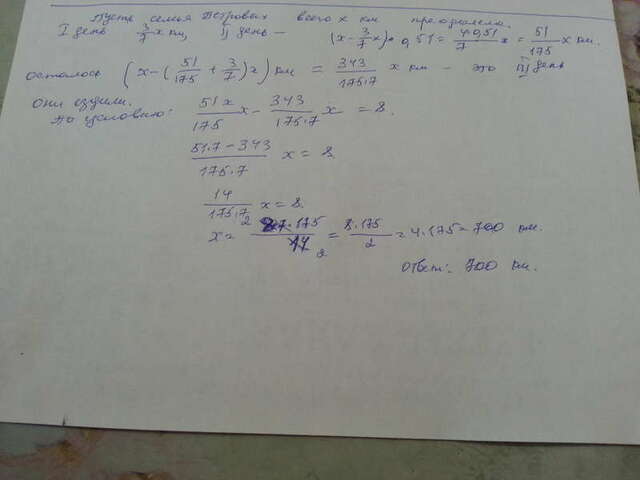 Пусть семья Петровых всего x км преодолела.
I день 3/7 x км, II день – (x - 3/7 x) · 0,51 = 4·0,51/7 x = 51/175 x км.
осталось (x - (51/175 + 3/7) x) км = 343/175·7 x км - это III день
они ездили.
По условию: 51x/175 x - 343/175·7 x = 8.
51·7 - 343/175·7 x = 8.
14/175·7 x = 8.
x = 8·7·175/14 = 8·175/2 = 4·175 = 700 км.
ответ: 700 км.